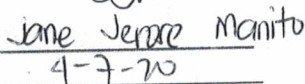 Jane Jerore Manito
4-7-20